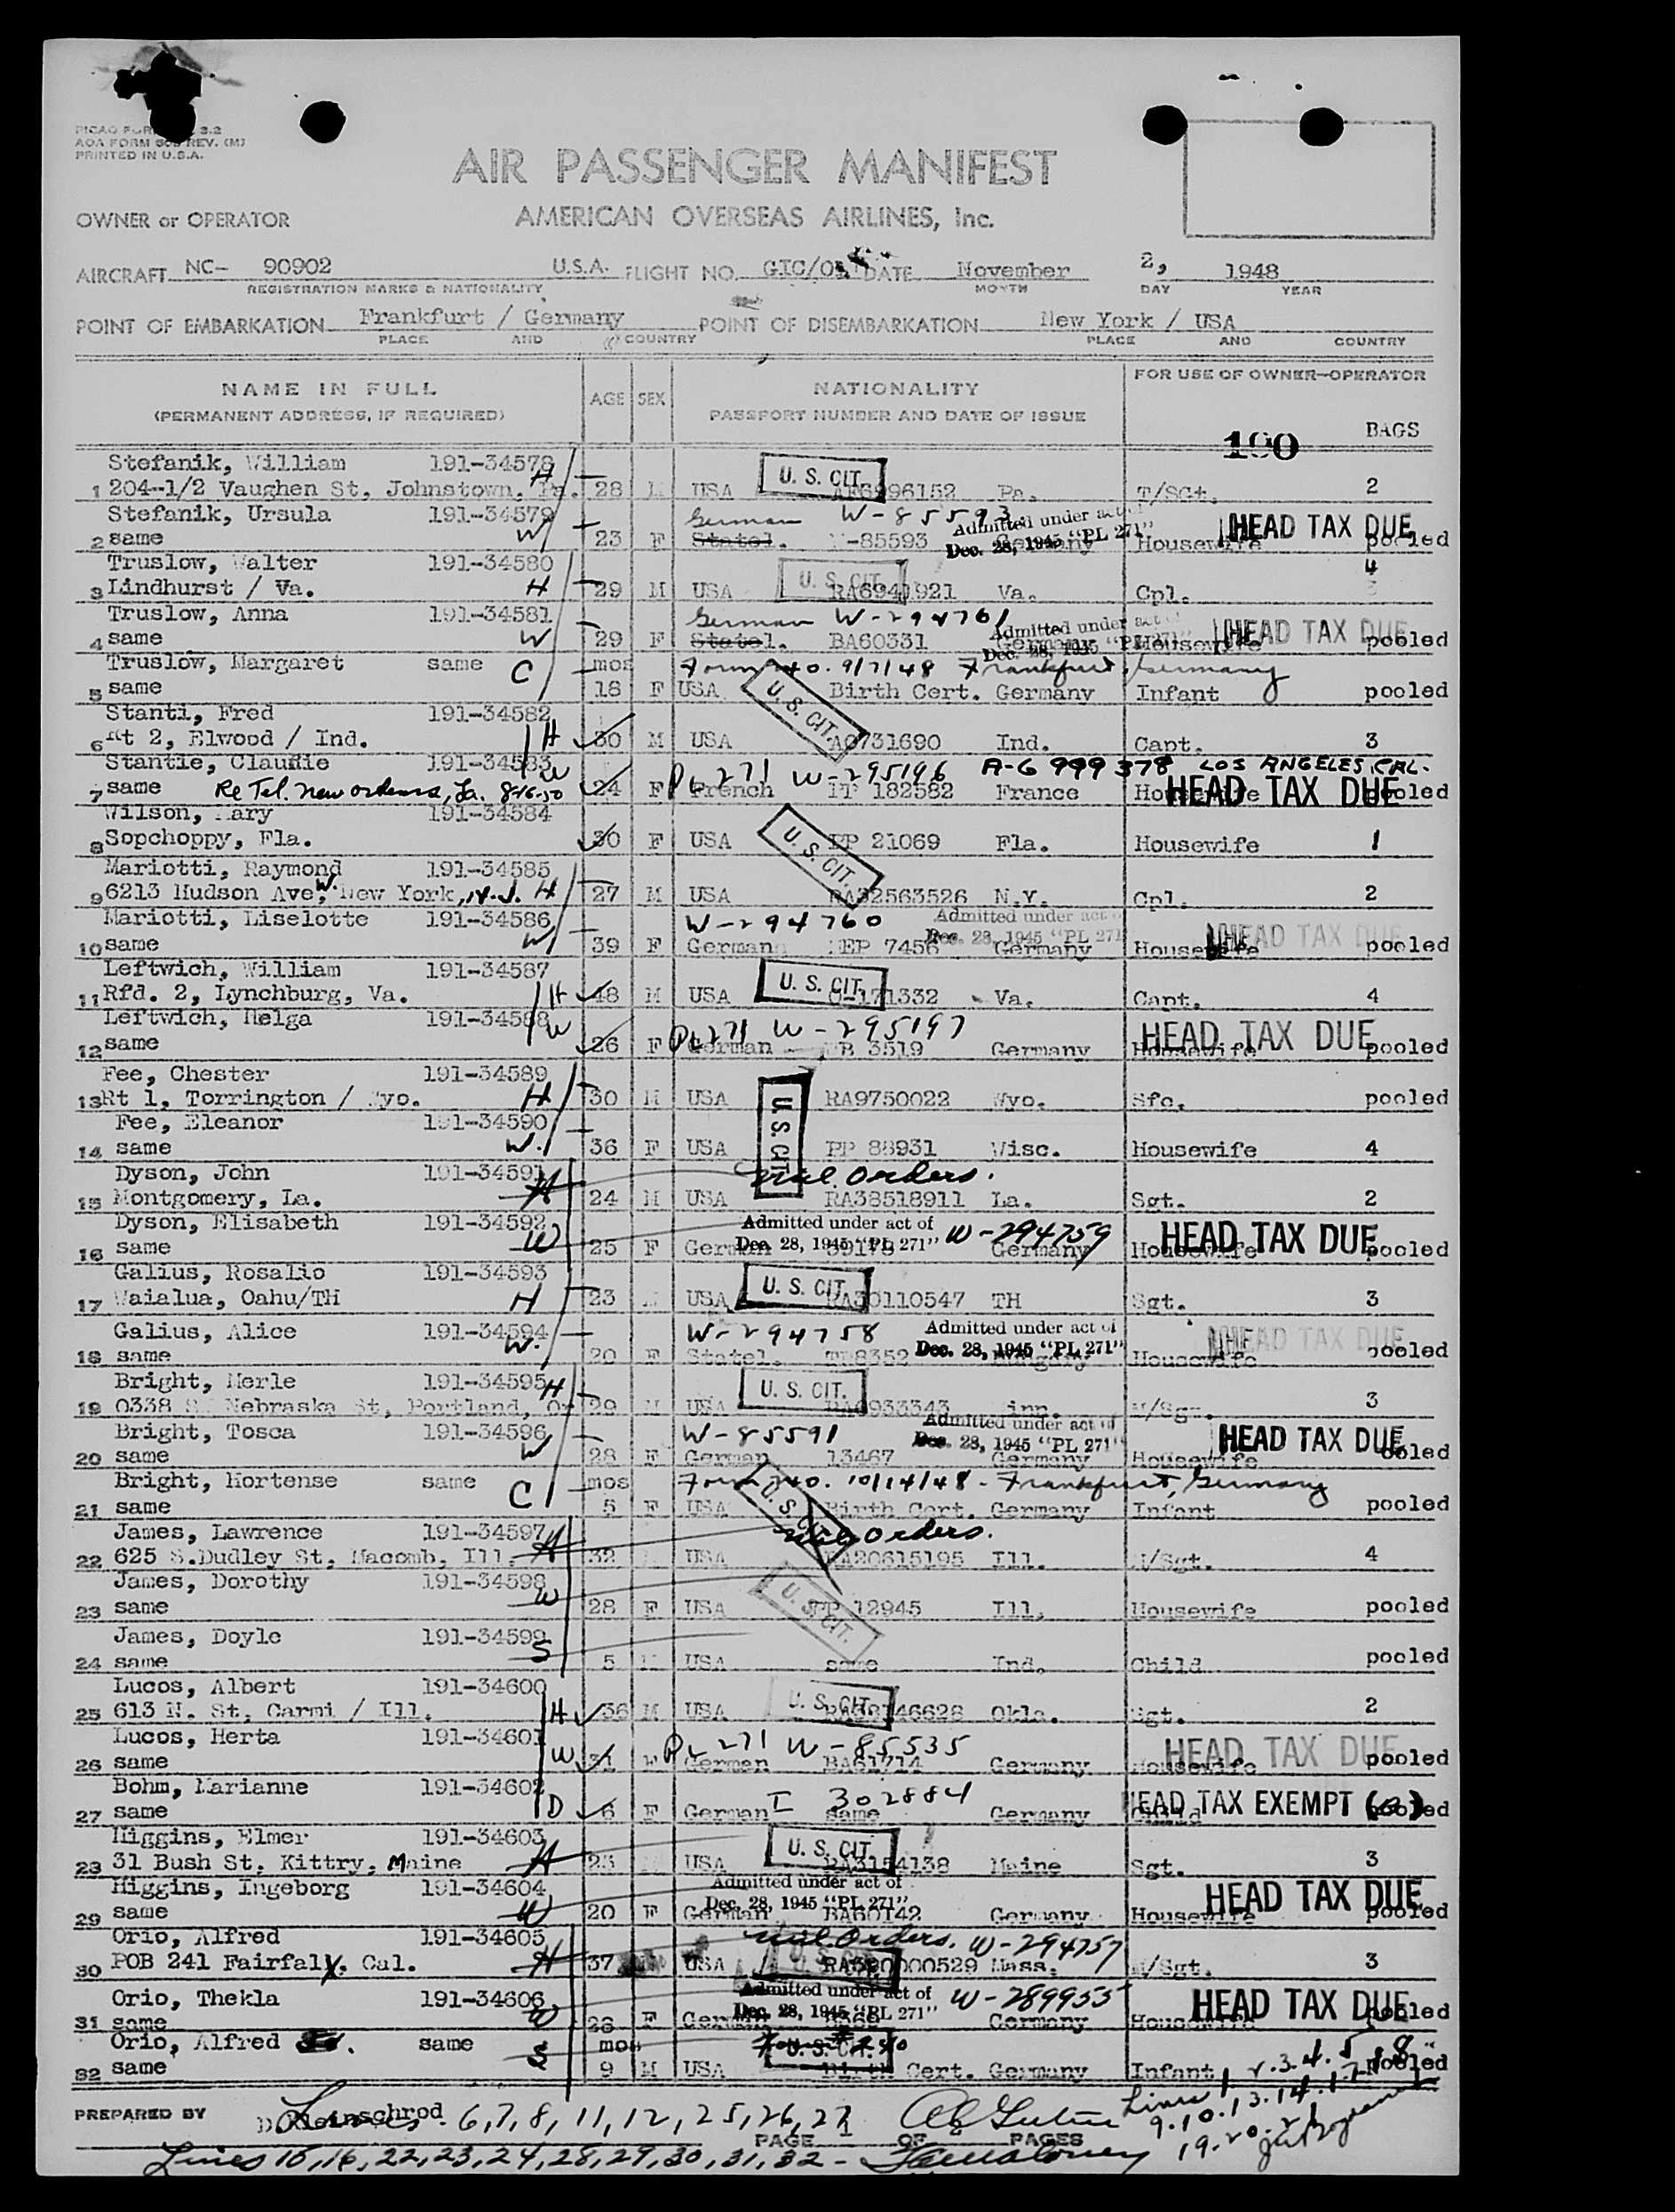 AOA FORM REV. (M)
PRINTED IN U.S.A.
AIR PASSENGER MANIFEST
OWNER or OPERATOR AMERICAN OVERSEAS AIRLINES, Inc.
AIRCRAFT NC- 90902 U.S.A. FLIGHT NO. DATE November 2, 1948
REGISTRATION MARKS & NATIONALITY MONTH DAY YEAR
POINT OF EMBARKATION Frankfurt / Germany POINT OF DISEMBARKATION New York / USA
PLACE AND COUNTRY PLACE AND COUNTRY
NAME IN FULL AGE SEX NATIONALITY FOR USE OF OWNER-OPERATOR
(PERMANENT ADDRESS, IF REQUIRED) PASSPORT NUMBER AND DATE OF ISSUE BAGS
100
Stefanik, William 191-34578 U. S. CIT.
1 204-1/2 Vaughen St, Johnstown, Pa. H 28 M USA Pa. T/SGt. 2
Stefanik, Ursula 191-34579 German W-85593 Admitted under act of HEAD TAX DUE
2 same W 23 F Statel. W-85593 Dec. 28, 1945 "PL 271" Germany Housewife pooled
Truslow, Walter 191-34580 U. S. CIT. 4
3 Lindhurst / Va. H 29 M USA RA6941921 Va. Cpl.
Truslow, Anna 191-34581 German W-294761 Admitted under act of HEAD TAX DUE
4 same W 29 F Statel. BA60331 Germany Dec. 28, 1945 "PL 271" Housewife pooled
Truslow, Margaret same C mos Form 240. 9/7/48 Frankfurt, Germany
5 same 18 F USA Birth Cert. Germany Infant pooled
Stanti, Fred 191-34582 U. S. CIT.
6 Rt 2, Elwood / Ind. H 30 M USA AO731690 Ind. Capt. 3
Stantie, Claudie 191-34583 W PL 271 W-295196 A-6 999 378 LOS ANGELES, CAL.
7 same Re Tel. New Orleans, La. 8-16-50 24 F French PP 182582 France Housewife HEAD TAX DUE pooled
Wilson, Mary 191-34584 U. S. CIT.
8 Sopchoppy, Fla. 30 F USA PP 21069 Fla. Housewife 1
Mariotti, Raymond 191-34585
9 6213 Hudson Ave, W. New York, N.J. H 27 M USA RA32563526 N.Y. Cpl. 2
Mariotti, Liselotte 191-34586 W-294760 Admitted under act of HEAD TAX DUE
10 same W 39 F German EP 7456 Dec. 28, 1945 "PL 271 Germany Housewife pooled
Leftwich, William 191-34587 U. S. CIT.
11 Rfd. 2, Lynchburg, Va. H 48 M USA O-171332 Va. Capt. 4
Leftwich, Helga 191-34588 W PL 271 W-295197 HEAD TAX DUE
12 same 26 F German 3519 Germany Housewife pooled
Fee, Chester 191-34589 U. S. CIT.
13 Rt 1, Torrington / Wyo. H 30 M USA RA9750022 Wyo. Sfc. pooled
Fee, Eleanor 191-34590
14 same W. 36 F USA PP 88931 Wisc. Housewife 4
Dyson, John 191-34591 mil. orders.
15 Montgomery, La. H 24 M USA RA38518911 La. Sgt. 2
Dyson, Elisabeth 191-34592 Admitted under act of W-294759 HEAD TAX DUE
16 same W 25 F German Dec. 28, 1945 "PL 271" Germany Housewife pooled
Galius, Rosalio 191-34593 U. S. CIT.
17 Waialua, Oahu/TH H 23 USA RA30110547 TH Sgt. 3
Galius, Alice 191-34594 W-294758 Admitted under act of HEAD TAX DUE
18 same W. 20 F Statel. Dec. 28, 1945 "PL 271" Hungary Housewife pooled
Bright, Merle 191-34595 H U. S. CIT.
19 0338 Nebraska St, Portland, Or 29 M USA 3
Bright, Tosca 191-34596 W-85591 Admitted under act of HEAD TAX DUE
20 same W 28 F German 13467 Dec. 28, 1945 "PL 271" Germany Housewife pooled
Bright, Hortense same C mos Form 240. 10/14/48 - Frankfurt, Germany
21 same 5 F USA U. S. CIT. Birth Cert. Germany Infant pooled
James, Lawrence 191-34597 mil. orders.
22 625 S.Dudley St, Macomb, Ill. H 32 USA RA20615195 Ill. M/Sgt. 4
James, Dorothy 191-34598 U. S. CIT.
23 same W 28 F USA PP 12945 Ill. Housewife pooled
James, Doyle 191-34599
24 same S 5 M USA same Ind. Child pooled
Lucos, Albert 191-34600 U. S. CIT.
25 613 N. St. Carmi / Ill. H 36 M USA Okla. Sgt. 2
Lucos, Herta 191-34601 PL 271 W-85535 HEAD TAX DUE
26 same W 31 F German BA61714 Germany Housewife pooled
Bohm, Marianne 191-34602 I 302884 HEAD TAX EXEMPT
27 same D 6 F German same Germany Child pooled
Higgins, Elmer 191-34603 U. S. CIT.
28 31 Bush St. Kittry, Maine H 23 USA RA3154138 Maine Sgt. 3
Higgins, Ingeborg 191-34604 Admitted under act of HEAD TAX DUE
29 same W 20 F German Dec. 28, 1945 "PL 271" BA60142 Germany Housewife pooled
Orio, Alfred 191-34605 mil. orders. W-294757
30 POB 241 Fairfax, Cal. H 37 USA Mass. M/Sgt. 3
Orio, Thekla 191-34606 Admitted under act of W-289955 HEAD TAX DUE
31 same W F German Dec. 28, 1945 "PL 271" Germany Housewife pooled
Orio, Alfred same mos U. S. CIT.
32 same S 9 M USA Birth Cert. Germany Infant pooled
PREPARED BY Kleinschrod Lines 6,7,8,11,12,25,26,27 Lines 1.2.3.4.5.
PAGE 1 OF PAGES 9.10.13.14.17.18
Lines 15,16,22,23,24,28,29,30,31,32 - 19.20.21